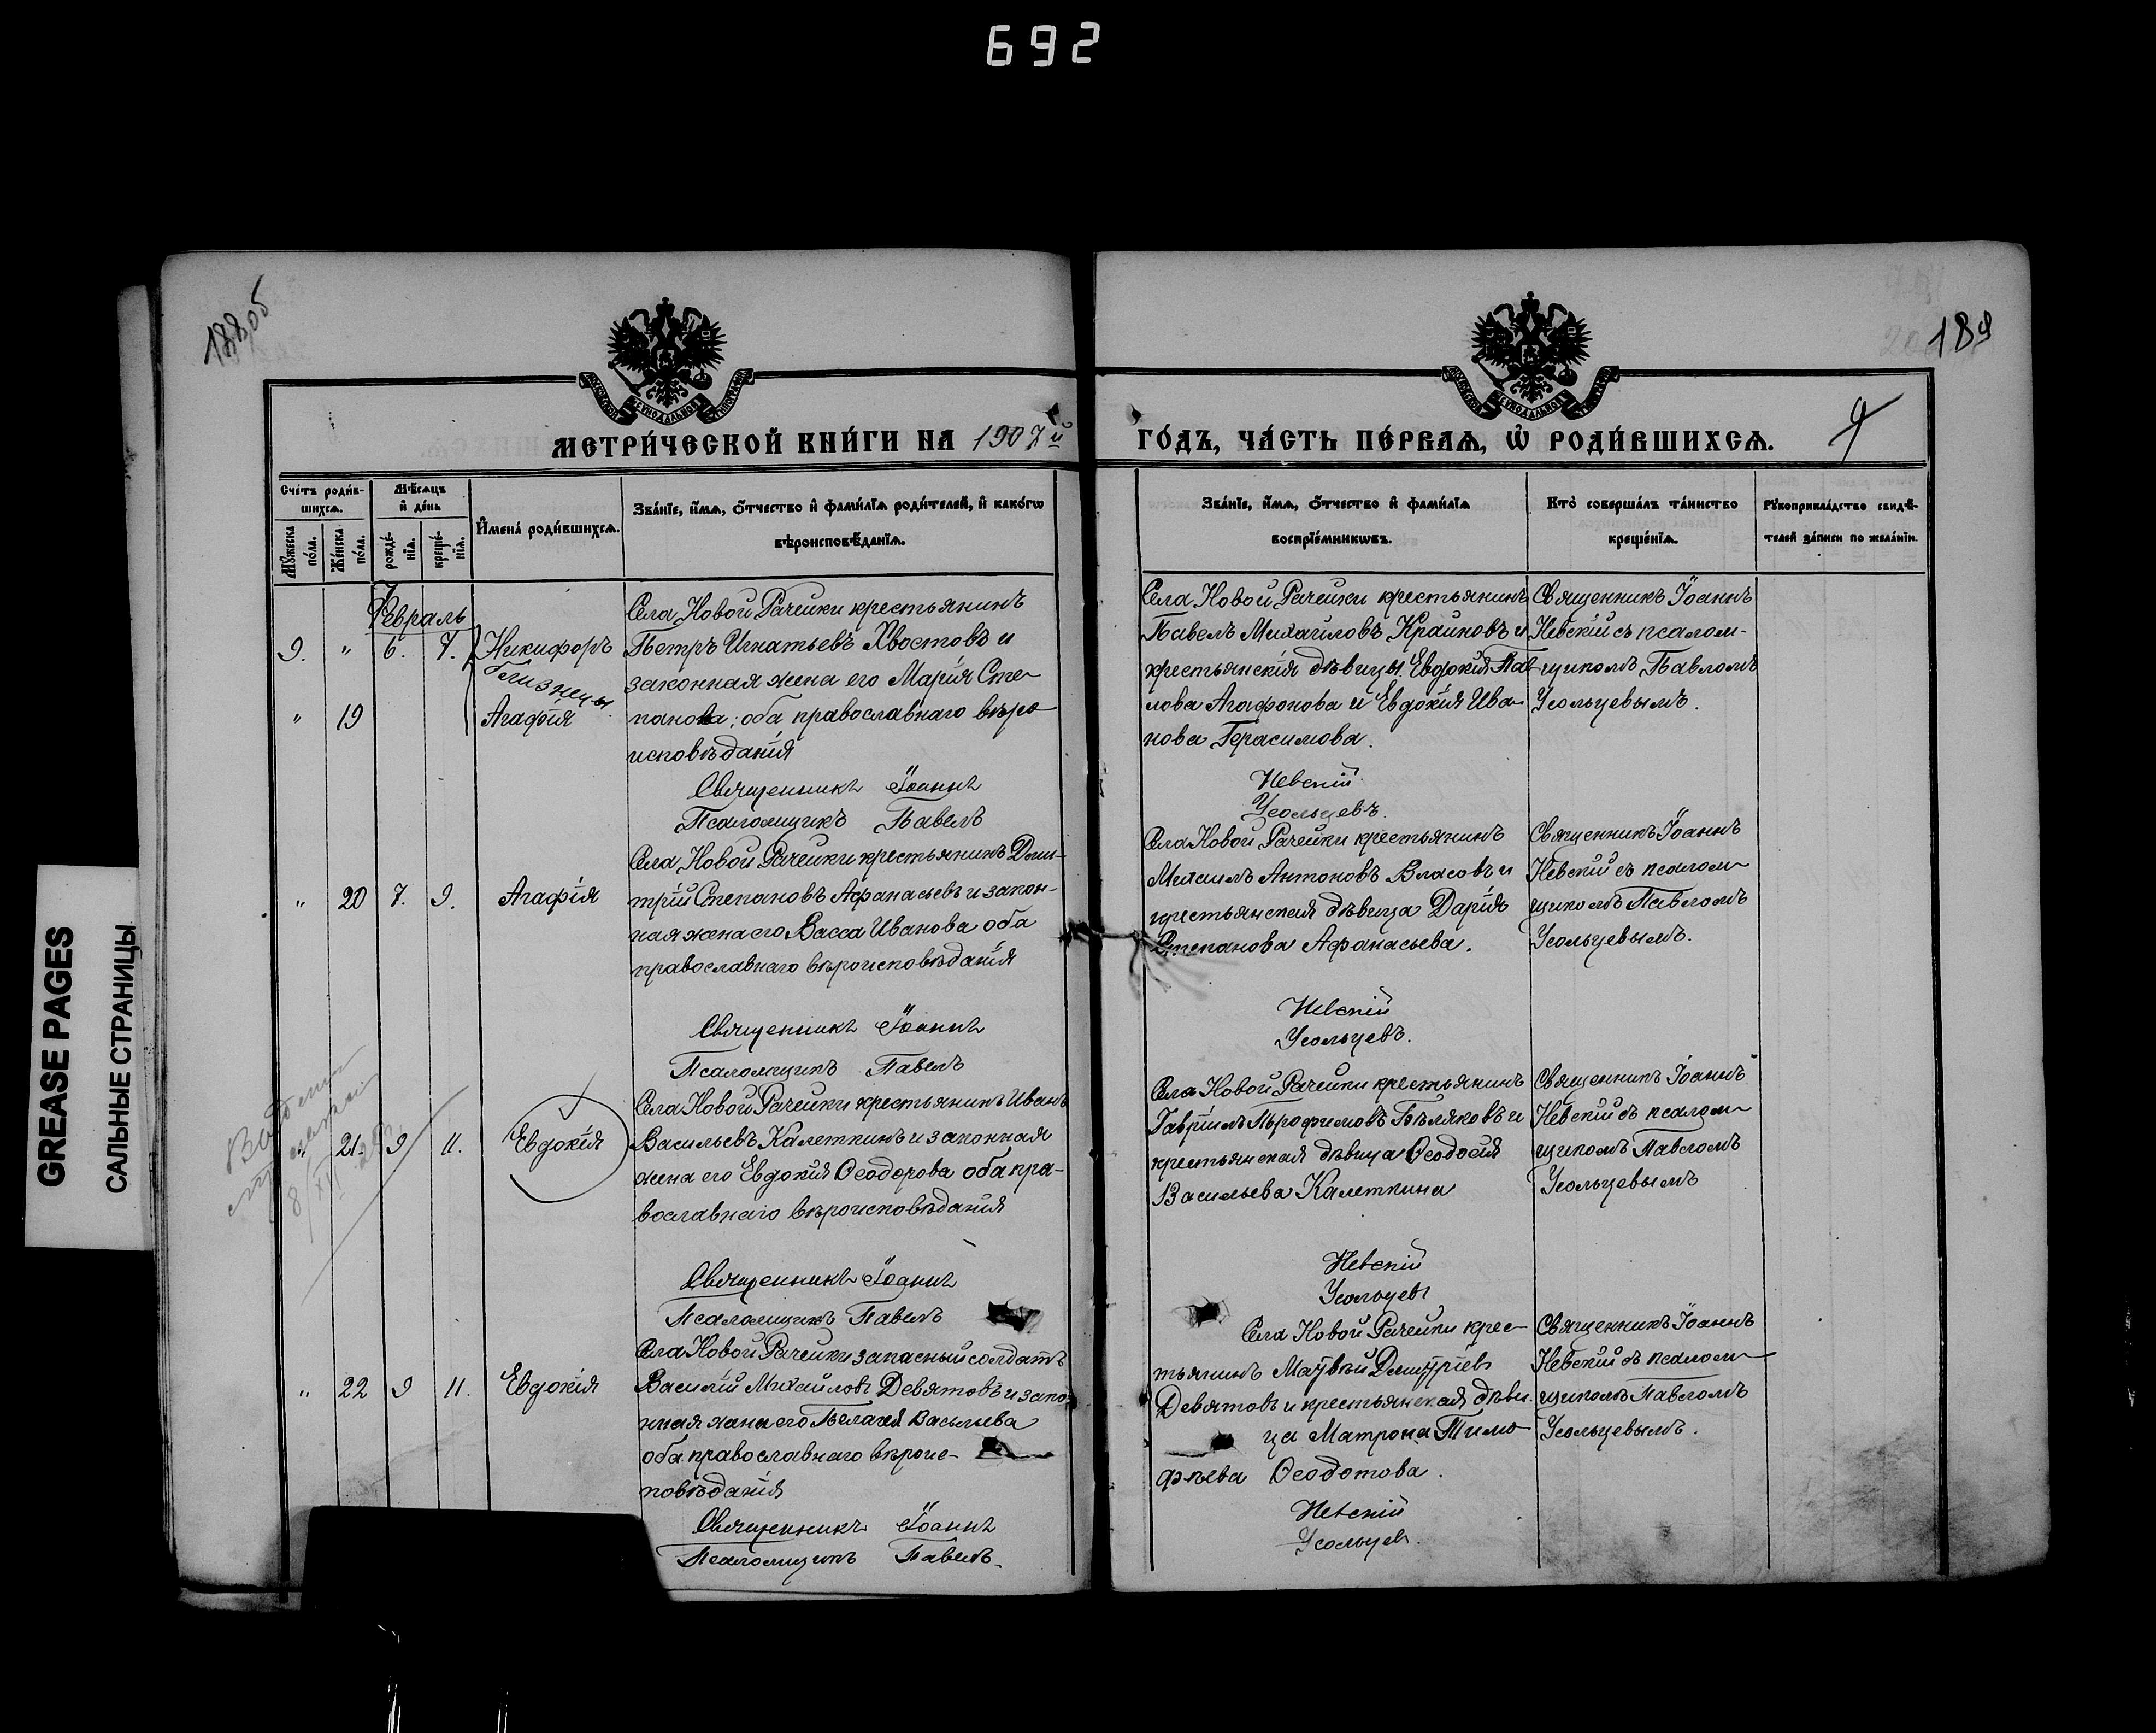 692
188об
189
9
GREASE PAGES
САЛЬНЫЕ СТРАНИЦЫ
МЕТРИ́ЧЕСКОЙ КНИ́ГИ НА 1907й
ГО́ДЪ, ЧА́СТЬ ПЕ́РВАѦ, Ѡ҆ РОДИ́ВШИХСѦ.
Сче́тъ роди́в-
шихсѧ.
Мꙋ́жеска по́ла.
Же́нска по́ла.
Мѣ́сѧцъ
и҆ де́нь
рожде́-
нїѧ.
креще́-
нїѧ.
И҆мена̀ роди́вшихсѧ.
Зва́нїе, и҆́мѧ, ѻ҆́тчество и҆ фами́лїѧ роди́телей, и҆ како́гѡ
вѣроисповѣ́данїѧ.
Зва́нїе, и҆́мѧ, ѻ҆́тчество и҆ фами́лїѧ
воспрїе́мникѡвъ.
Кто̀ соверша́лъ та́инство
креще́нїѧ.
Рꙋкоприкла́дство свидѣ́-
телей за́писи по жела́нїю.
Февраль
9. " 6. 7. Никифоръ
близнецы
" 19 Агафія
Села Новой Рачейки крестьянинъ
Петръ Игнатьевъ Хвостовъ и
законная жена его Марія Сте-
панова; оба православнаго вѣро-
исповѣданія
Священникъ Іоаннъ
Псаломщикъ Павелъ
Села Новой Рачейки крестьянинъ
Павелъ Михайловъ Крайновъ и
крестьянскія дѣвицы Евдокія Пав-
лова Агафонова и Евдокія Ива-
нова Герасимова.
Невскій
Усольцевъ.
Священникъ Іоаннъ
Невскій съ псалом-
щикомъ Павломъ
Усольцевымъ.
" 20 7. 9. Агафія
Села Новой Рачейки крестьянинъ Дми-
трій Степановъ Афанасьевъ и закон-
ная жена его Васса Иванова оба
православнаго вѣроисповѣданія
Священникъ Іоаннъ
Псаломщикъ Павелъ
Села Новой Рачейки крестьянинъ
Михаилъ Антоновъ Власовъ и
крестьянская дѣвица Дарія
Степанова Афанасьева.
Невскій
Усольцевъ.
Священникъ Іоаннъ
Невскій съ псалом-
щикомъ Павломъ
Усольцевымъ.
" 21. 9 11. Евдокія
Села Новой Рачейки крестьянинъ Иванъ
Васильевъ Калеткинъ и законная
жена его Евдокія Ѳеодорова оба пра-
вославнаго вѣроисповѣданія
Священникъ Іоаннъ
Псаломщикъ Павелъ
Села Новой Рачейки крестьянинъ
Гавріилъ Трофимовъ Бѣляковъ и
крестьянская дѣвица Ѳеодосія
Васильева Калеткина
Невскій
Усольцевъ
Священникъ Іоаннъ
Невскій съ псалом-
щикомъ Павломъ
Усольцевымъ
" 22 9 11. Евдокія
Села Новой Рачейки запасный солдатъ
Василій Михайловъ Девятовъ и зако-
нная жена его Пелагея Васильева
оба православнаго вѣроис-
повѣданія
Священникъ Іоаннъ
Псаломщикъ Павелъ.
Села Новой Рачейки крес-
тьянинъ Матвѣй Димитріевъ
Девятовъ и крестьянская дѣви-
ца Матрона Тимо-
фѣева Ѳеодотова.
Невскій
Усольцевъ.
Священникъ Іоаннъ
Невскій съ псалом-
щикомъ Павломъ
Усольцевымъ.